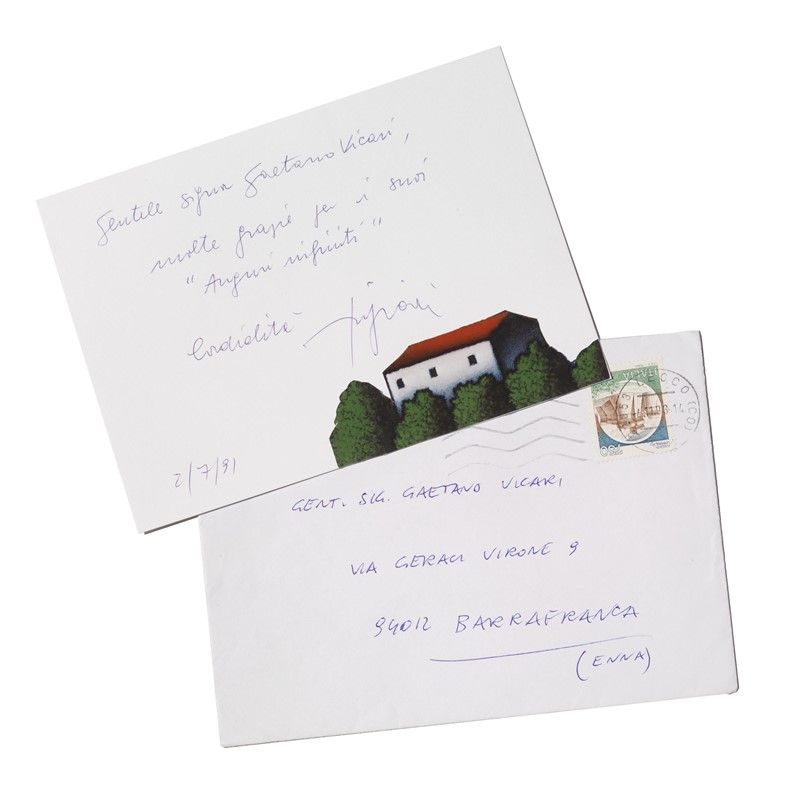 Gentile signor Gaetano Vicari,
molte grazie per i suoi
"Auguri
Cordialità
2/7/91
ITALIA
750
LECCO (CO)
GENT. SIG. GAETANO VICARI
VIA GERACI VIRONE 9
94012 BARRAFRANCA
(ENNA)